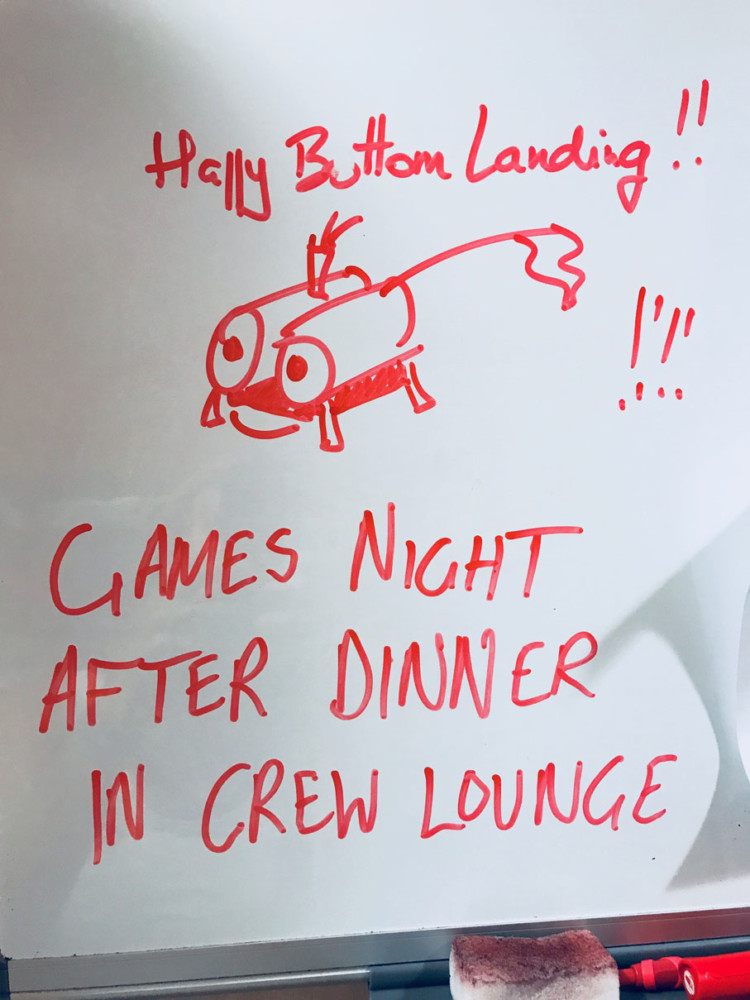 Hally Buttom Landing !!
!'!!
GAMES NIGHT
AFTER DINNER
IN CREW LOUNGE